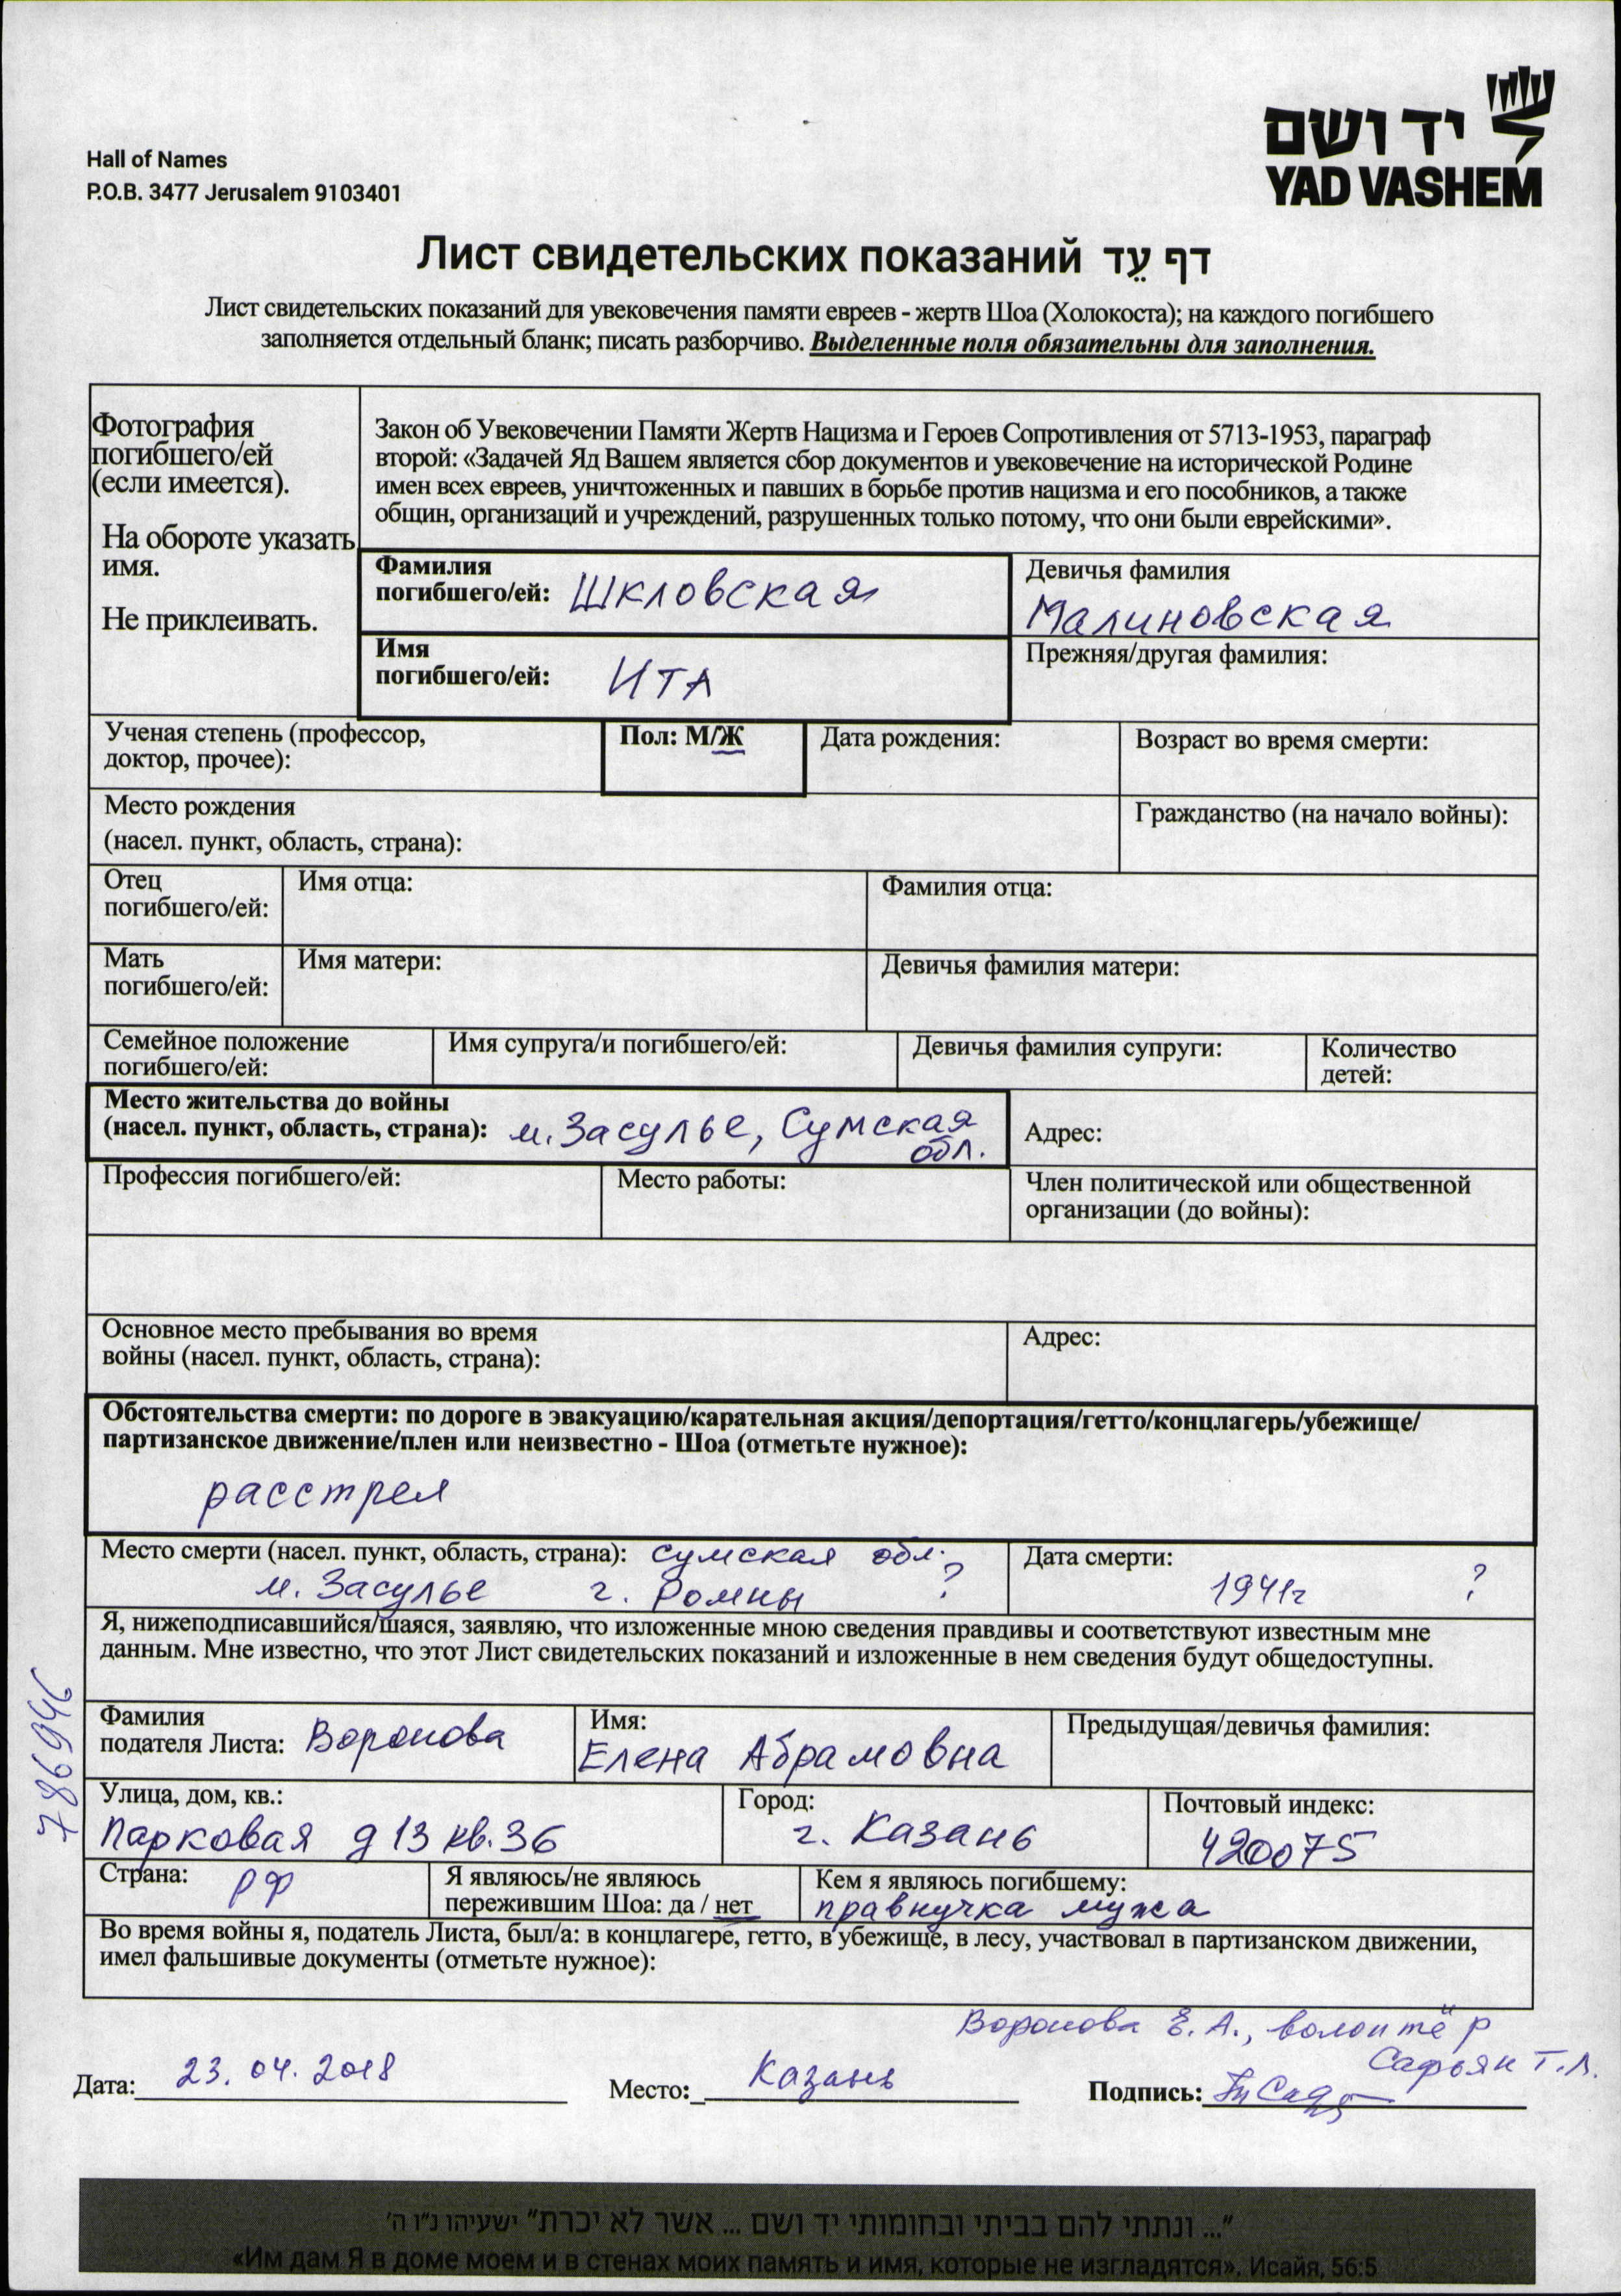 Hall of Names
P.O.B. 3477 Jerusalem 9103401
יד ושם
YAD VASHEM
Лист свидетельских показаний דף עֵד
Лист свидетельских показаний для увековечения памяти евреев - жертв Шоа (Холокоста); на каждого погибшего
заполняется отдельный бланк; писать разборчиво. Выделенные поля обязательны для заполнения.
Фотография
погибшего/ей
(если имеется).
На обороте указать
имя.
Не приклеивать.
Закон об Увековечении Памяти Жертв Нацизма и Героев Сопротивления от 5713-1953, параграф
второй: «Задачей Яд Вашем является сбор документов и увековечение на исторической Родине
имен всех евреев, уничтоженных и павших в борьбе против нацизма и его пособников, а также
общин, организаций и учреждений, разрушенных только потому, что они были еврейскими».
Фамилия
погибшего/ей: Шкловская
Девичья фамилия
Малиновская
Имя
погибшего/ей: Ита
Прежняя/другая фамилия:
Ученая степень (профессор,
доктор, прочее):
Пол: М/Ж
Дата рождения:
Возраст во время смерти:
Место рождения
(насел. пункт, область, страна):
Гражданство (на начало войны):
Отец
погибшего/ей:
Имя отца:
Фамилия отца:
Мать
погибшего/ей:
Имя матери:
Девичья фамилия матери:
Семейное положение
погибшего/ей:
Имя супруга/и погибшего/ей:
Девичья фамилия супруги:
Количество
детей:
Место жительства до войны
(насел. пункт, область, страна): м. Засулье, Сумская
обл.
Адрес:
Профессия погибшего/ей:
Место работы:
Член политической или общественной
организации (до войны):
Основное место пребывания во время
войны (насел. пункт, область, страна):
Адрес:
Обстоятельства смерти: по дороге в эвакуацию/карательная акция/депортация/гетто/концлагерь/убежище/
партизанское движение/плен или неизвестно - Шоа (отметьте нужное):
расстрел
Место смерти (насел. пункт, область, страна): Сумская обл.
м. Засулье г. Ромны ?
Дата смерти:
1941г ?
Я, нижеподписавшийся/шаяся, заявляю, что изложенные мною сведения правдивы и соответствуют известным мне
данным. Мне известно, что этот Лист свидетельских показаний и изложенные в нем сведения будут общедоступны.
Фамилия
подателя Листа: Воронова
Имя:
Елена Абрамовна
Предыдущая/девичья фамилия:
Улица, дом, кв.:
Парковая д 13 кв. 36
Город:
г. Казань
Почтовый индекс:
420075
Страна: РФ
Я являюсь/не являюсь
пережившим Шоа: да / нет
Кем я являюсь погибшему:
правнучка мужа
Во время войны я, податель Листа, был/а: в концлагере, гетто, в убежище, в лесу, участвовал в партизанском движении,
имел фальшивые документы (отметьте нужное):
Воронова Е. А., волонтёр
Сафьян Т.Л.
Дата: 23. 04. 2018
Место: Казань
Подпись:
786946
"... ונתתי להם בביתי ובחומותי יד ושם ... אשר לא יכרת" ישעיהו נ"ו ה'
«Им дам Я в доме моем и в стенах моих память и имя, которые не изгладятся». Исайя, 56:5